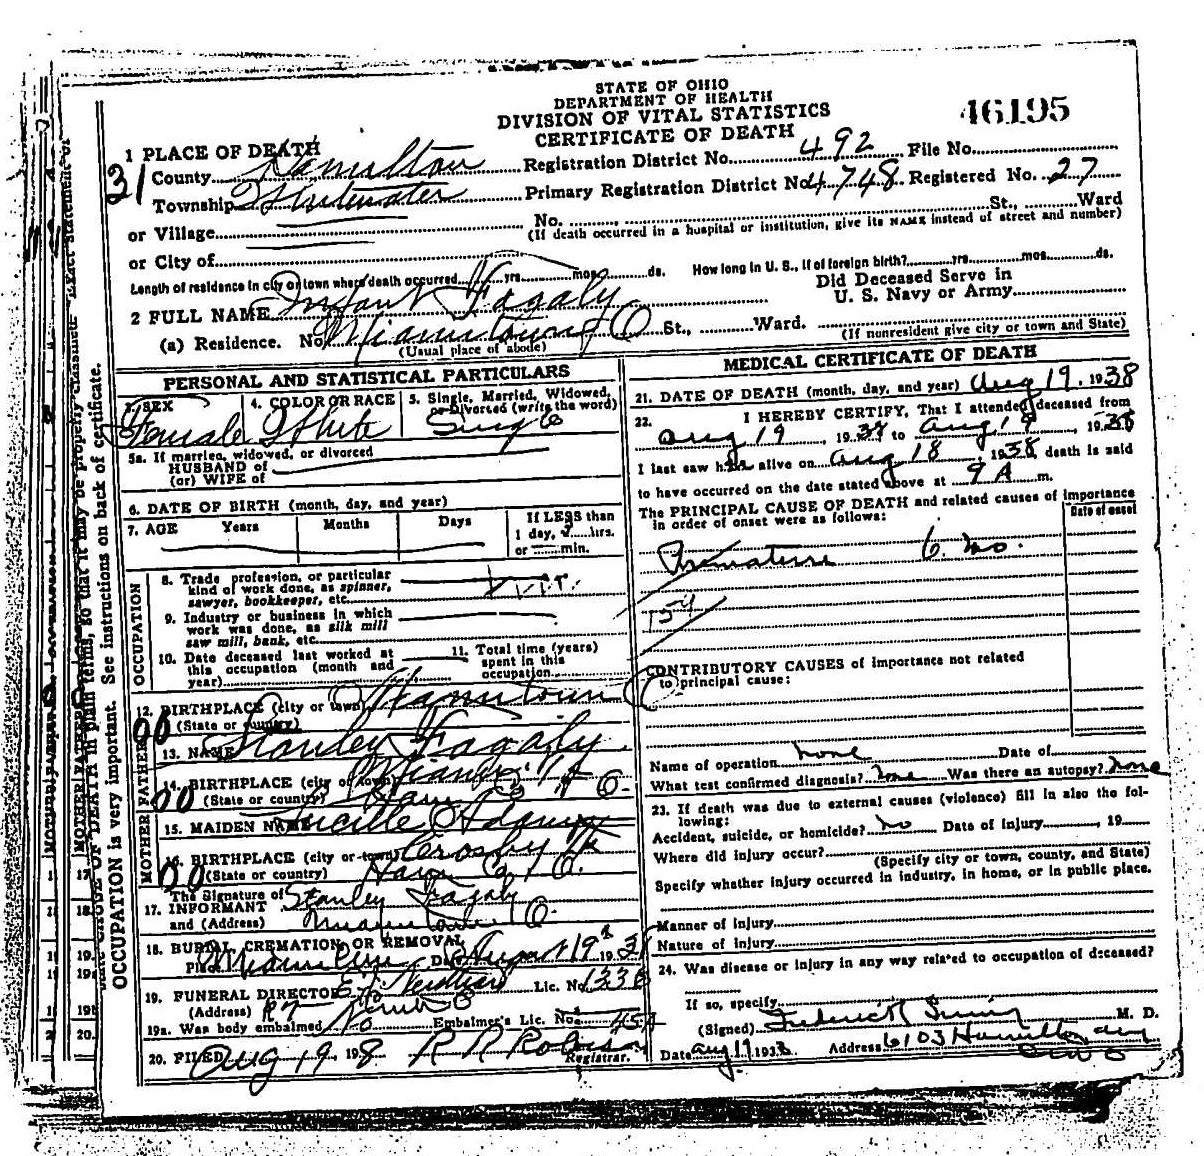 STATE OF OHIO
DEPARTMENT OF HEALTH
DIVISION OF VITAL STATISTICS
CERTIFICATE OF DEATH
46195
1 PLACE OF DEATH
31
County Hamilton Registration District No. 492 File No.
Township Whitewater Primary Registration District No. 4748 Registered No. 27
or Village No. St., Ward
(If death occurred in a hospital or institution, give its NAME instead of street and number)
or City of
Length of residence in city or town where death occurred yrs. mos. ds. How long in U. S., if of foreign birth? yrs. mos. ds.
Did Deceased Serve in
U. S. Navy or Army
2 FULL NAME Infant Fagaly
(a) Residence. No. Miamitown O St., Ward.
(Usual place of abode) (If nonresident give city or town and State)
PERSONAL AND STATISTICAL PARTICULARS
3. SEX Female
4. COLOR OR RACE White
5. Single, Married, Widowed, or Divorced (write the word) Single
5a. If married, widowed, or divorced
HUSBAND of
(or) WIFE of
6. DATE OF BIRTH (month, day, and year)
7. AGE Years Months Days If LESS than
1 day, hrs.
or min.
OCCUPATION
8. Trade, profession, or particular
kind of work done, as spinner,
sawyer, bookkeeper, etc.
9. Industry or business in which
work was done, as silk mill
saw mill, bank, etc.
10. Date deceased last worked at
this occupation (month and
year)
11. Total time (years)
spent in this
occupation
12. BIRTHPLACE (city or town) Miamitown O
(State or country)
00
FATHER
13. NAME Stanley Fagaly
14. BIRTHPLACE (city or town)
(State or country) Ham Co O.
00
MOTHER
15. MAIDEN NAME Lucille Adams
16. BIRTHPLACE (city or town) Crosby
(State or country) Ham Co O.
00
17. The Signature of
INFORMANT Stanley Fagaly
and (Address) Miamitown O.
18. BURIAL, CREMATION OR REMOVAL
Place Miamitown Date August 19 1938
19. FUNERAL DIRECTOR Lic. No. 133B
(Address)
19a. Was body embalmed No Embalmer's Lic. No. 45A
20. FILED Aug 19 1938 R R Robinson
Registrar.
MEDICAL CERTIFICATE OF DEATH
21. DATE OF DEATH (month, day, and year) Aug 19. 1938
22. I HEREBY CERTIFY, That I attended deceased from
Aug 19, 1938 to Aug 19, 1938
I last saw h alive on Aug 18, 1938 death is said
to have occurred on the date stated above at 9 A m.
The PRINCIPAL CAUSE OF DEATH and related causes of importance
in order of onset were as follows:
Date of onset
Premature 6. mo.
159
CONTRIBUTORY CAUSES of importance not related
to principal cause:
Name of operation none Date of
What test confirmed diagnosis? none Was there an autopsy? none
23. If death was due to external causes (violence) fill in also the fol-
lowing:
Accident, suicide, or homicide? no Date of injury , 19
Where did injury occur?
(Specify city or town, county, and State)
Specify whether injury occurred in industry, in home, or in public place.
Manner of injury
Nature of injury
24. Was disease or injury in any way related to occupation of deceased?
If so, specify
(Signed) Frederick M. D.
Date Aug 19 1938 Address 6103 Hamilton Ave
OCCUPATION is very important. See instructions on back of certificate.